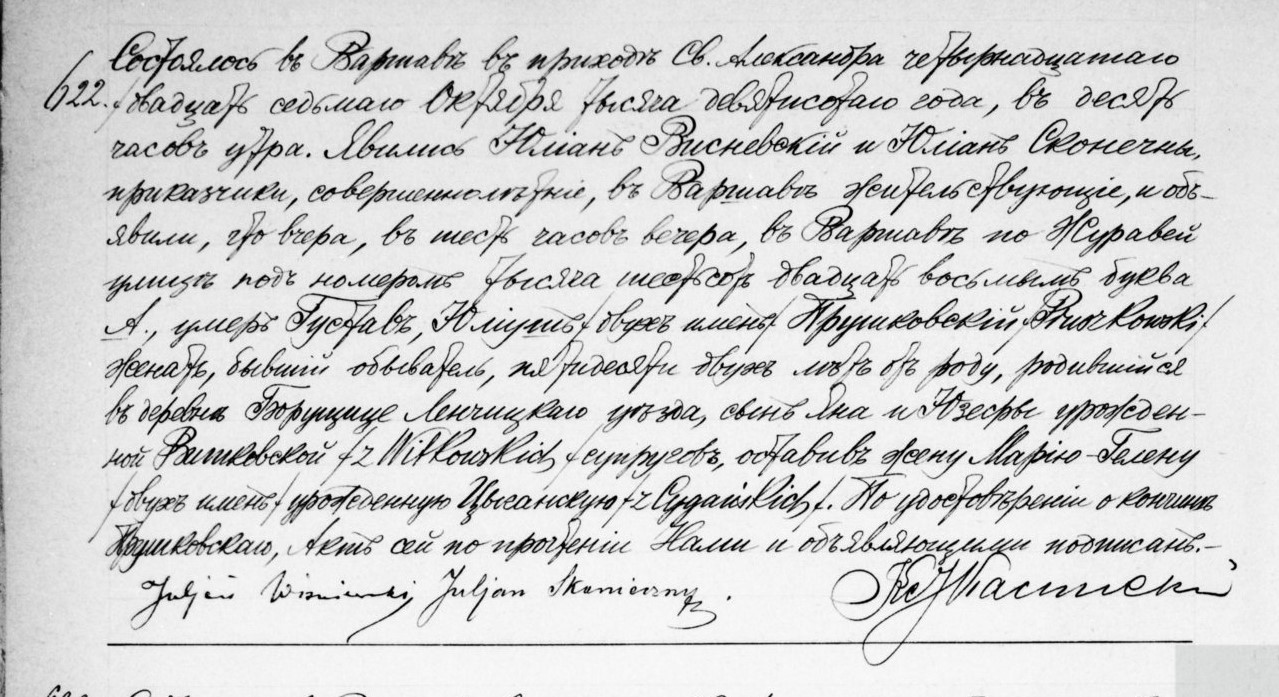 Состоялось въ Варшавѣ въ приходѣ Св. Александра четырнадцатаго
622. /двадцать седьмаго Октября тысяча девятисотаго года, въ десять
часовъ утра. Явились Юліанъ Висневскій и Юліанъ Сконечны,
приказчики, совершеннолѣтніе, въ Варшавѣ жительствующіе, и объ-
явили, что вчера, въ шесть часовъ вечера, въ Варшавѣ по Журавей
улицѣ подъ номеромъ тысяча шестьсотъ двадцать восьмымъ буква
А., умеръ Густавъ, Юліушъ /двухъ именъ/ Прушковскій /Pruszkowski/
женатъ, бывшій обыватель, пятидесяти двухъ лѣтъ отъ роду, родившійся
въ деревнѣ Борущице Ленчицкаго уѣзда, сынъ Яна и Юзефы урожден-
ной Витковской /z Witkowskich/ супруговъ, оставивъ жену Марію-Гелену
/двухъ именъ/ урожденную Цыганскую /z Cygańskich/. По удостовѣреніи о кончинѣ
Прушковскаго, Актъ сей по прочтеніи Нами и объявляющими подписанъ.-
Juljan Wiśniewski, Juljan Skonieczny.